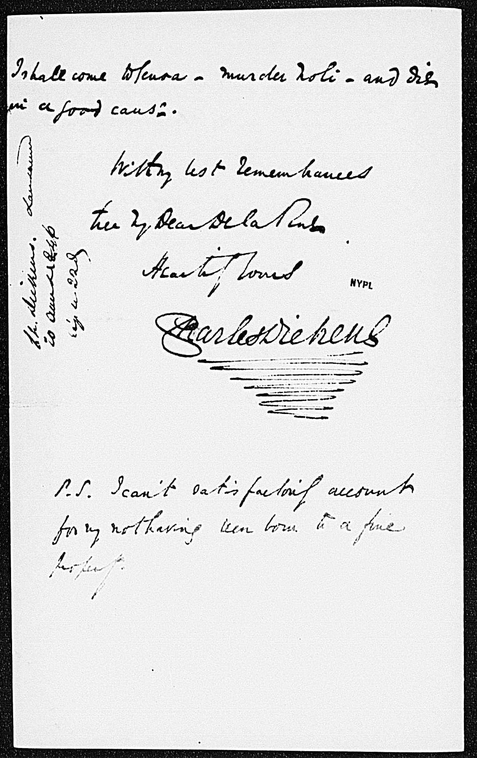 I shall come to Genoa – murder Noli – and die
in a good cause.
With my best remembrances
Ever My Dear De la Rue
Heartily Yours
Charles Dickens
NYPL
Ch. Dickens. Lausanne
P.S. I can't satisfactorily account
for my not having been born to a fine
property.